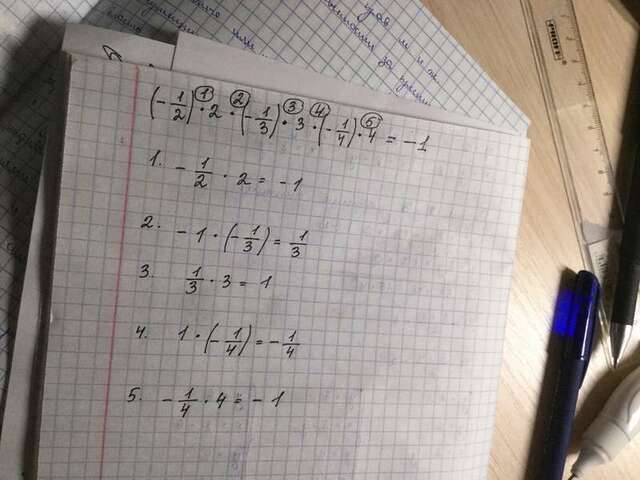 (-1/2) · 2 · (-1/3) · 3 · (-1/4) · 4 = -1
1 2 3 4 5
1. -1/2 · 2 = -1
2. -1 · (-1/3) = 1/3
3. 1/3 · 3 = 1
4. 1 · (-1/4) = -1/4
5. -1/4 · 4 = -1